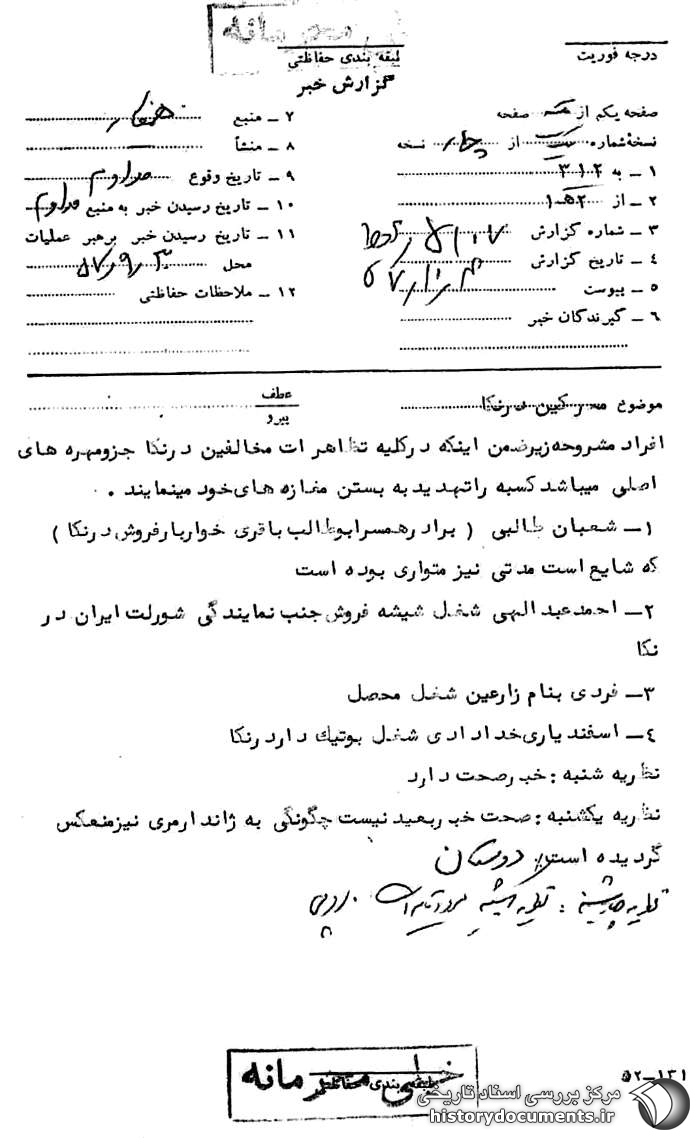 خیلی محرمانه
درجه فوریت
طبقه بندی حفاظتی
گزارش خبر
صفحه یکم از یک صفحه
نسخهٔ شماره یک از چهار نسخه
۱ ـ به ۳۱۲
۲ ـ از ۲ﻫ۱
۳ ـ شماره گزارش
۴ ـ تاریخ گزارش
۵ ـ پیوست
۶ ـ گیرندگان خبر
۷ ـ منبع همکار
۸ ـ منشأ
۹ ـ تاریخ وقوع مداوم
۱۰ ـ تاریخ رسیدن خبر به منبع مداوم
۱۱ ـ تاریخ رسیدن خبر برهبر عملیات
محل ۵۷٫۹٫۳۰
۱۲ ـ ملاحظات حفاظتی
موضوع محرکین در نکا
عطف
پیرو
افراد مشروحه زیر ضمن اینکه در کلیه تظاهرات مخالفین در نکا جزو مهره های
اصلی میباشد کسبه را تهدید به بستن مغازه های خود مینمایند .
۱ـ شعبان طالبی ( برادر همسر ابوطالب باقری خواربار فروش در نکا )
که شایع است مدتی نیز متواری بوده است
۲ـ احمد عبدالهی شغل شیشه فروش جنب نمایندگی شورلت ایران در
نکا
۳ـ فردی بنام زارعین شغل محصل
۴ـ اسفندیاری خدادادی شغل بوتیك دارد رنکا
نظریه شنبه : خبر صحت دارد
نظریه یکشنبه : صحت خبر بعید نیست چگونگی به ژاندارمری نیز منعکس
گردیده است. دوستان
نظریه چهارشنبه : نظریه یکشنبه
۵۲-۱۳۱
طبقه بندی حفاظتی
خیلی محرمانه
مرکز بررسی اسناد تاریخی
historydocuments.ir